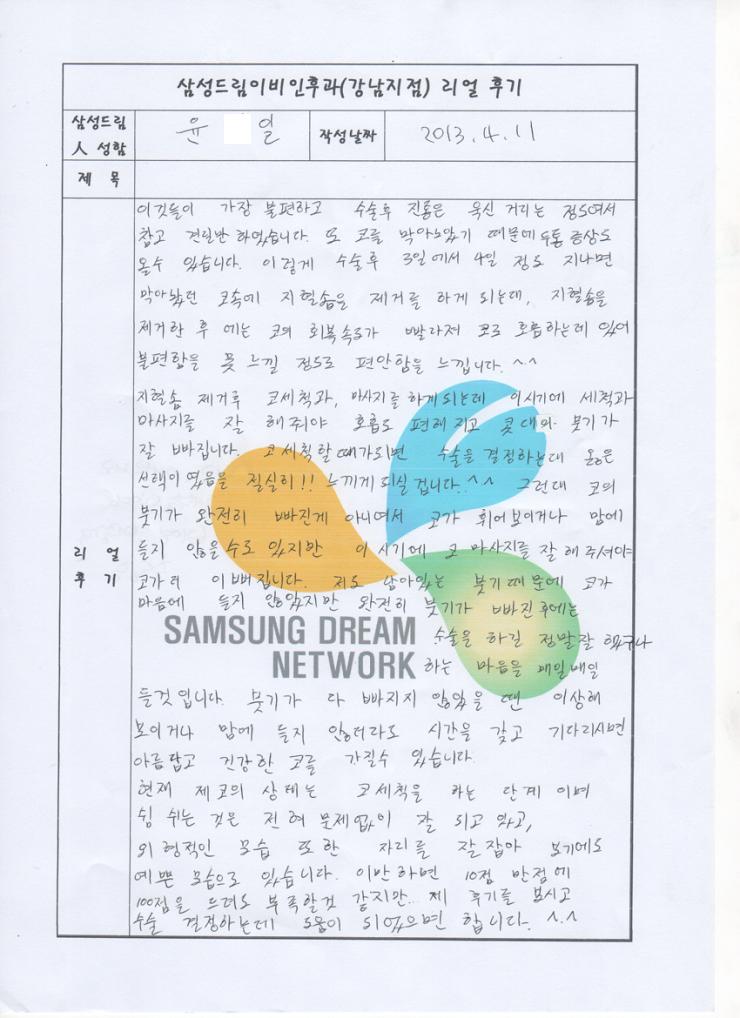 삼성드림이비인후과(강남지점) 리얼 후기
삼성드림
人 성함
윤 일
작성날짜
2013.4.11
제 목
리 얼
후 기
이것들이 가장 불편하고 수술후 진통은 욱신 거리는 정도여서
참고 견딜만 하였습니다. 또 코를 막아놓았기 때문에 두통 증상도
올수 있습니다. 이렇게 수술후 3일에서 4일 정도 지나면
막아놨던 코속에 지혈솜을 제거를 하게 되는대, 지혈솜을
제거한 후 에는 코의 회복속도가 빨라져 코로 호흡하는데 있어
불편함을 못 느낄 정도로 편안함을 느낍니다. ^.^
지혈솜 제거후 코세척과, 마사지를 하게되는데 이시기에 세척과
마사지를 잘 해줘야 호흡도 편해지고 콧대의 붓기가
잘 빠집니다. 코세척할때가되면 수술을 결정하는대 옳은
선택이였음을 절실히!! 느끼게 되실겁니다..^^ 그런대 코의
붓기가 완전히 빠진게 아니여서 코가 휘어보이거나 맘에
들지 않을수도 있지만 이 시기에 코 마사지를 잘 해주셔야
코가 더 이뻐집니다. 저도 남아있는 붓기때문에 코가
마음에 들지 않았지만 완전히 붓기가 빠진후에는
수술을 하길 정말잘 했구나
SAMSUNG DREAM
NETWORK
하는 마음을 매일매일
들것입니다. 붓기가 다 빠지지 않았을 땐 이상해
보이거나 맘에 들지 않더라도 시간을 갖고 기다리시면
아름답고 건강한 코를 가질수 있습니다.
현재 제코의 상태는 코세척을 하는 단계 이며
쉼 쉬는 것은 전혀 문제없이 잘 되고 있고,
외형적인 모습 또한 자리를 잘잡아 보기에도
예쁜 모습으로 있습니다. 이만하면 10점 만점에
100점을 드려도 부족할것 같지만.. 제 후기를 보시고
수술 결정하는데 도움이 되었으면 합니다. ^.^